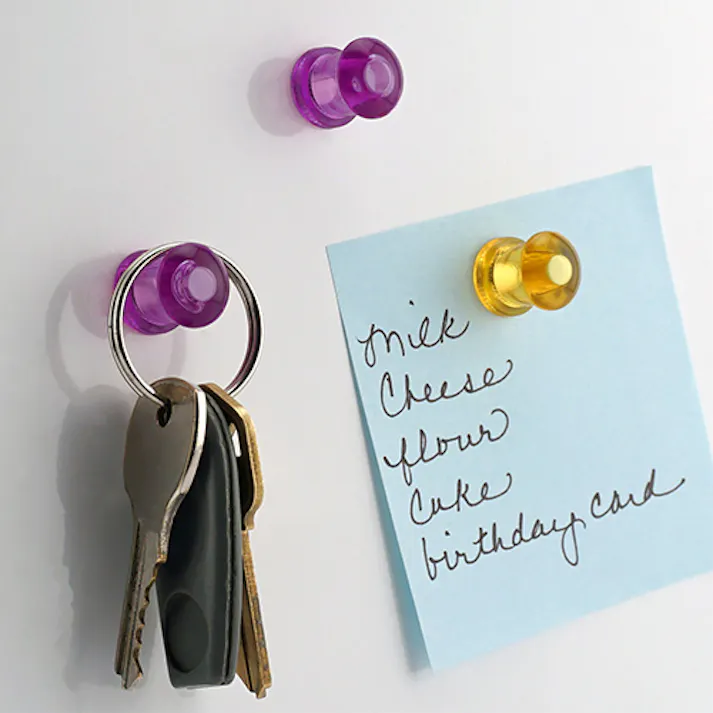 milk
Cheese
flour
Cake
birthday card